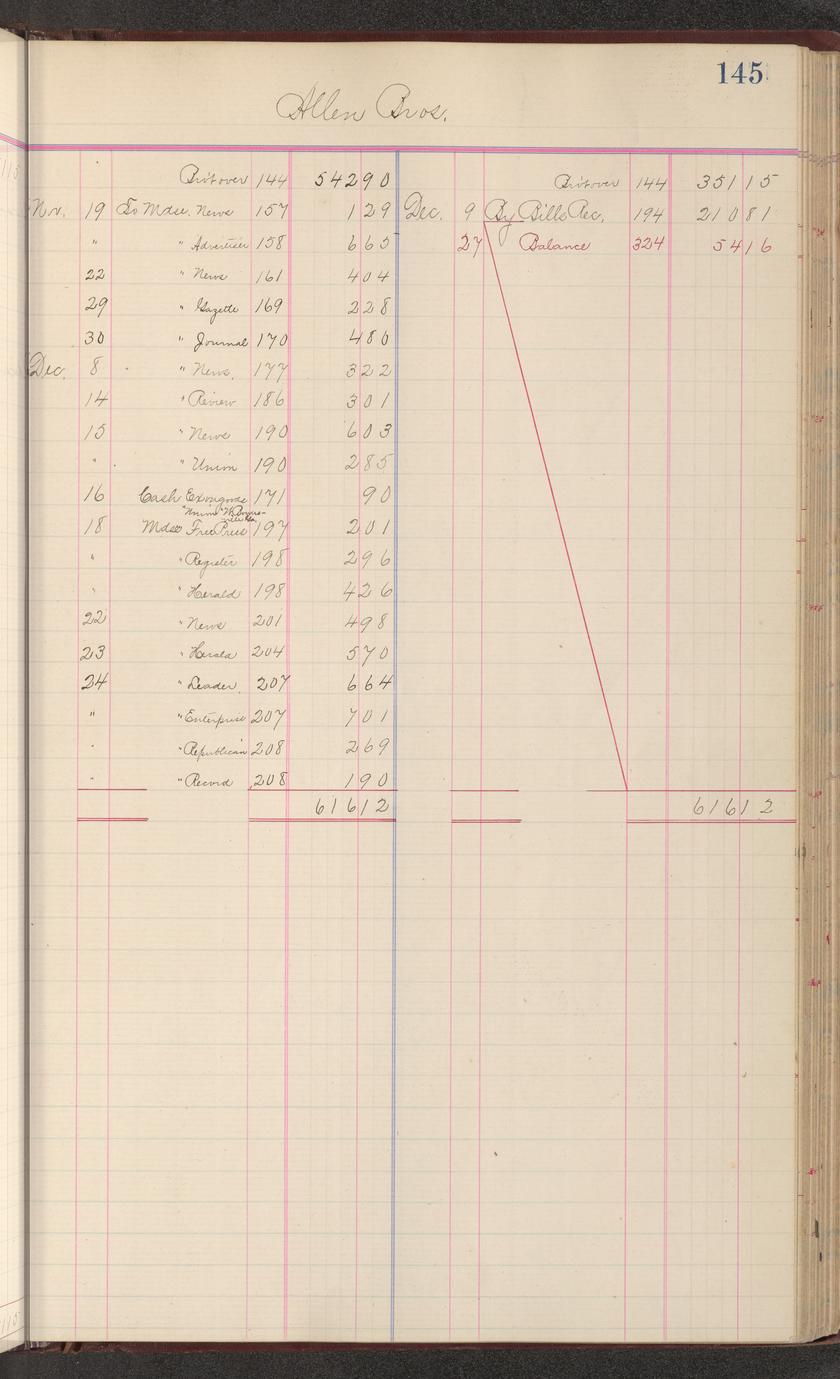 145
Allen Bros.
Bro't over 144 542 90
Bro't over 144 351 15
Nov. 19 To Mdse. News 157 1 29
Dec. 9 By Bills Rec. 194 210 81
" " Advertiser 158 6 65
27 Balance 324 54 16
22 " News 161 4 04
29 " Gazette 169 2 28
30 " Journal 170 4 80
Dec. 8 " News. 177 3 22
14 " Review 186 3 01
15 " News 190 6 03
" " Union 190 2 85
16 Cash Ex on goods 171 90
"Union"
18 Mdse Free Press 197 2 01
" " Register 198 2 96
" " Herald 198 4 26
22 " News 201 4 98
23 " Herald 204 5 70
24 " Leader. 207 6 64
" " Enterprise 207 7 01
" " Republican 208 2 69
" " Record 208 1 90
616 12
616 12